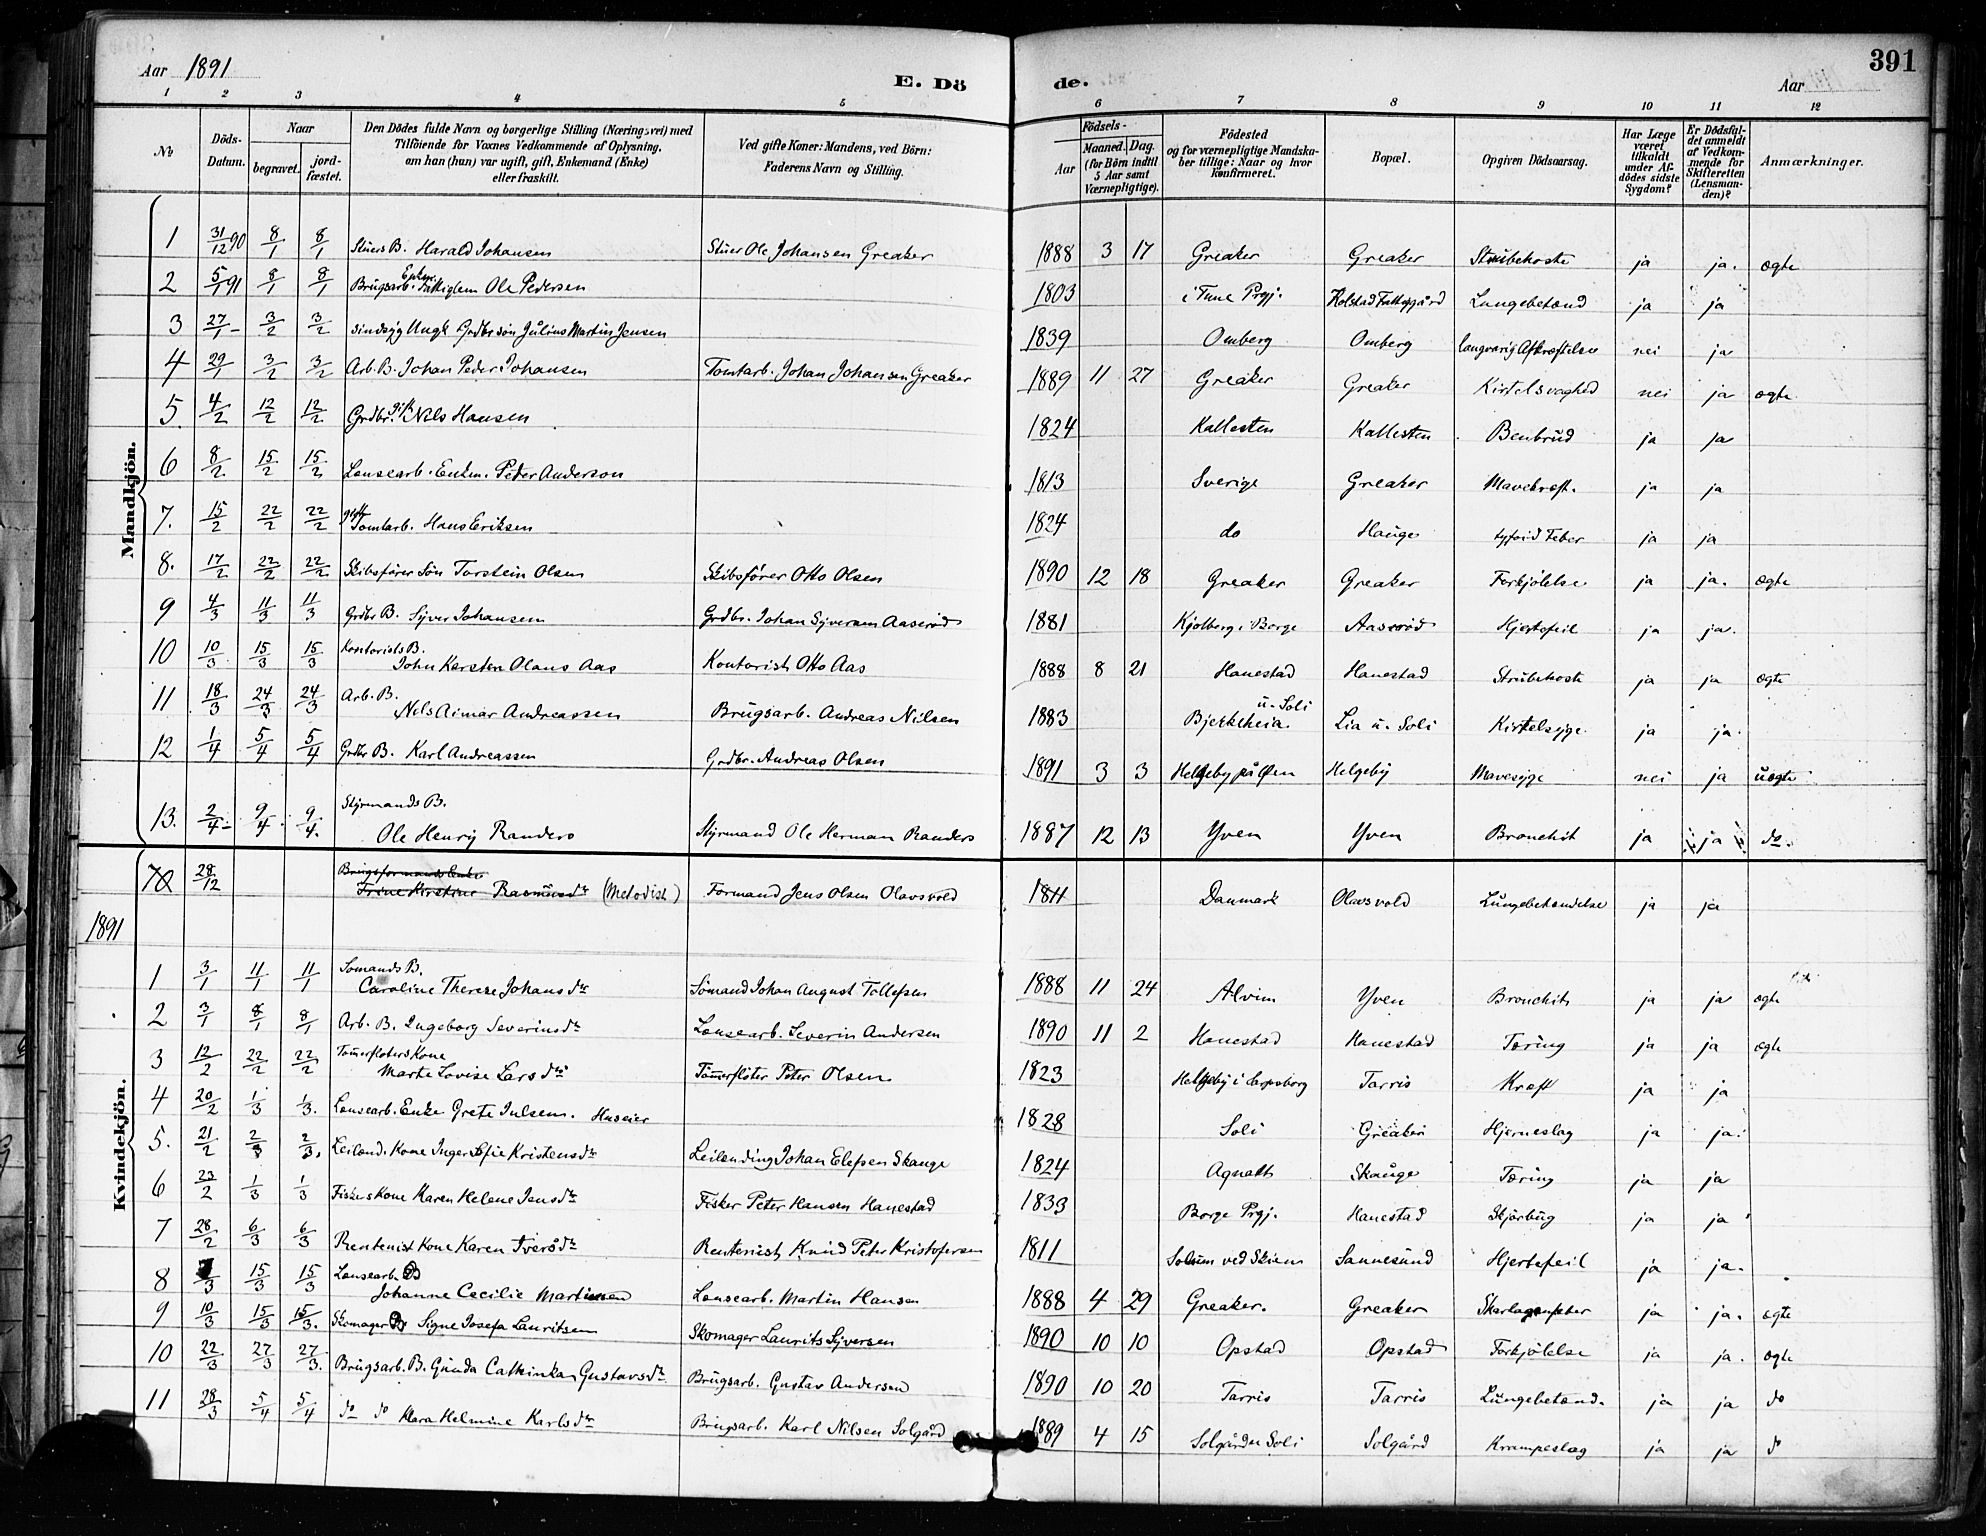 Aar 1891 E. Dö de. Aar 391
1 2 3 4 5 6 7 8 9 10 11 12
No
Döds-Datum.
Naar begravet. jord-fæstet.
Den Dödes fulde Navn og borgerlige Stilling (Næringsvei) med Tilföiende for Voxnes Vedkommende af Oplysning, om han (hun) var ugift, gift, Enkemand (Enke) eller fraskilt.
Ved gifte Koner: Mandens, ved Börn: Faderens Navn og Stilling.
Födsels- Aar Maaned. Dag. (for Börn indtil 5 Aar samt Værnepligtige).
Födested og for værnepligtige Mandskaber tillige: Naar og hvor konfirmeret.
Bopæl.
Opgiven Dödsaarsag.
Har Læge været tilkaldt under Afdödes sidste Sygdom?
Er Dödsfaldet anmeldt af Vedkommende for Skifteretten (Lensmanden)?
Anmærkninger.
Mandkjön.
1 31/12 90 8/1 8/1 Stuers B. Harald Johansen Stuer Ole Johansen Greaker 1888 3 17 Greaker Greaker Strubehoste ja ja. ægte
2 5/1 91 8/1 8/1 Brugsarb. Enkem. Fattiglem Ole Pedersen 1803 i Tune Prgj. Holstad Fattiggård Lungebetænd ja ja
3 27/1 - 3/2 3/2 sindsyg Ungk. Grdbr søn Julius Martin Jensen 1839 Omberg Omberg langvarig Afkræftelse nei ja
4 29/1 3/2 3/2 Arb. B. Johan Peder Johansen Tomtarb. Johan Johansen Greaker 1889 11 27 Greaker Greaker Kirtelsvaghed nei ja ægte
5. 4/2 12/2 12/2 Grdbr. gift Nils Hansen 1824 Kallesten Kallesten Benbrud ja ja
6 8/2 15/2 15/2 Lonsearb. Enkm. Peder Anderson 1813 Sverige Greaker Mavekræft. ja ja
7. 15/2 22/2 22/2 gift Tomtarb. Hans Eriksen 1824 do Hauge tyfoid Feber ja ja
8. 17/2 22/2 22/2 Skibsfører Søn Torstein Olsen Skibsfører Otto Olsen 1890 12 18 Greaker Greaker Forkjølelse ja ja. ægte
9 4/3 11/3 11/3 Grdbr B. Syver Johansen Grdbr. Johan Syversen Aaserød 1881 Kjølberg i Borge Aaserød Hjertefeil ja ja.
10 10/3 15/3 15/3 Kontorists B. John Karsten Olaus Aas Kontorist Otto Aas 1888 8 21 Hanestad Hanestad Strubehoste ja ja ægte
11 18/3 24/3 24/3 Arb. B. Nils Aimar Andreassen Brugsarb. Andreas Nilsen 1883 Bjerkeheia u. Soli Lia u. Soli Kirtelsyge ja ja.
12 1/4 5/4 5/4 Grdbr B. Karl Andreassen Grdbr. Andreas Olsen 1891 3 3 Helgeby på Øen Helgeby Mavesyge nei ja uægte
13. 2/4 - 9/4 9/4. Styrmands B. Ole Henry Randers Styrmand Ole Herman Randers 1887 12 13 Yven Yven Bronchit ja ja do.
70 28/12 Brugsformands Enke Trine Kirstine Rasmusdtr (Metodist) Formand Jens Olsen Olavsvold 1811 Danmark Olavsvold Lungebetændelse ja ja
1891
Kvindekjön.
1 3/1 11/1 11/1 Sømands B. Caroline Therese Johansdtr Sømand Johan August Tollefsen 1888 11 24 Alvim Yven Bronchit ja ja ægte
2 3/1 8/1 8/1 Arb. B. Ingeborg Severinsdtr Lonsearb. Severin Andersen 1890 11 2 Hanestad Hanestad Tæring ja ja ægte
3 12/2 22/2 22/2 Tømerfløters Kone Marte Lovise Larsdtr Tømerfløter Peter Olsen 1823 Helgeby i Sarpsborg Tarris Kræft ja ja
4 20/2 1/3 1/3. Lonsearb. Enke Grete Julsen. Huseier 1828 Soli Greaker Hjerneslag ja ja.
5. 21/2 2/3 2/3. Leilend. Kone Inger Sofie Kristensdtr Leilending Johan Elefsen Skauge 1824 Agnalt Skauge Tæring ja ja
6 23/2 1/3 1/3 Fiskers Kone Karen Helene Jensdtr Fisker Peter Hansen Hanestad 1833 Borge Prgj. Hanestad Skjørbug ja ja
7 28/2 6/3 6/3 Rentenist Kone Karen Iversdtr Rentenist Knud Peter Kristofersen 1811 Solum ved Skien Sannesund Hjertefeil ja ja.
8 /3 15/3 15/3 Lonsearb. B Johanne Cecilie Martinsen Lonsearb. Martin Hansen 1888 4 29 Greaker. Greaker Skarlagensfeber ja ja. ægte
9 10/3 15/3 15/3. Skomager B Signe Josefa Lauritsen Skomager Laurits Syversen 1890 10 10 Opstad Opstad Forkjølelse ja ja. ægte
10 22/3 27/3 27/3. Brugsarb. B. Gunda Cathinka Gustavsdtr. Brugsarb. Gustav Andersen 1890 10 20 Tarris Tarris Lungebetænd. ja ja do
11 28/3 5/4 5/4 do do Klara Helmine Karlsdtr Brugsarb. Karl Nilsen Solgård 1889 4 15 Solgård u Soli Solgård Krampeslag ja ja do